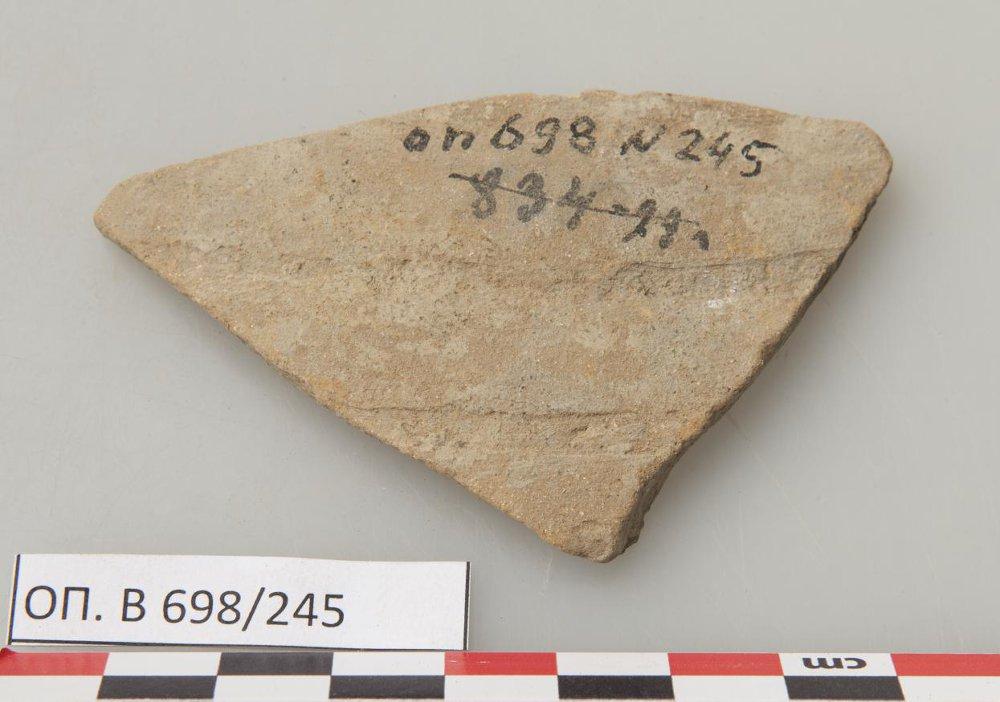 оп 698 N 245
ОП. В 698/245
cm